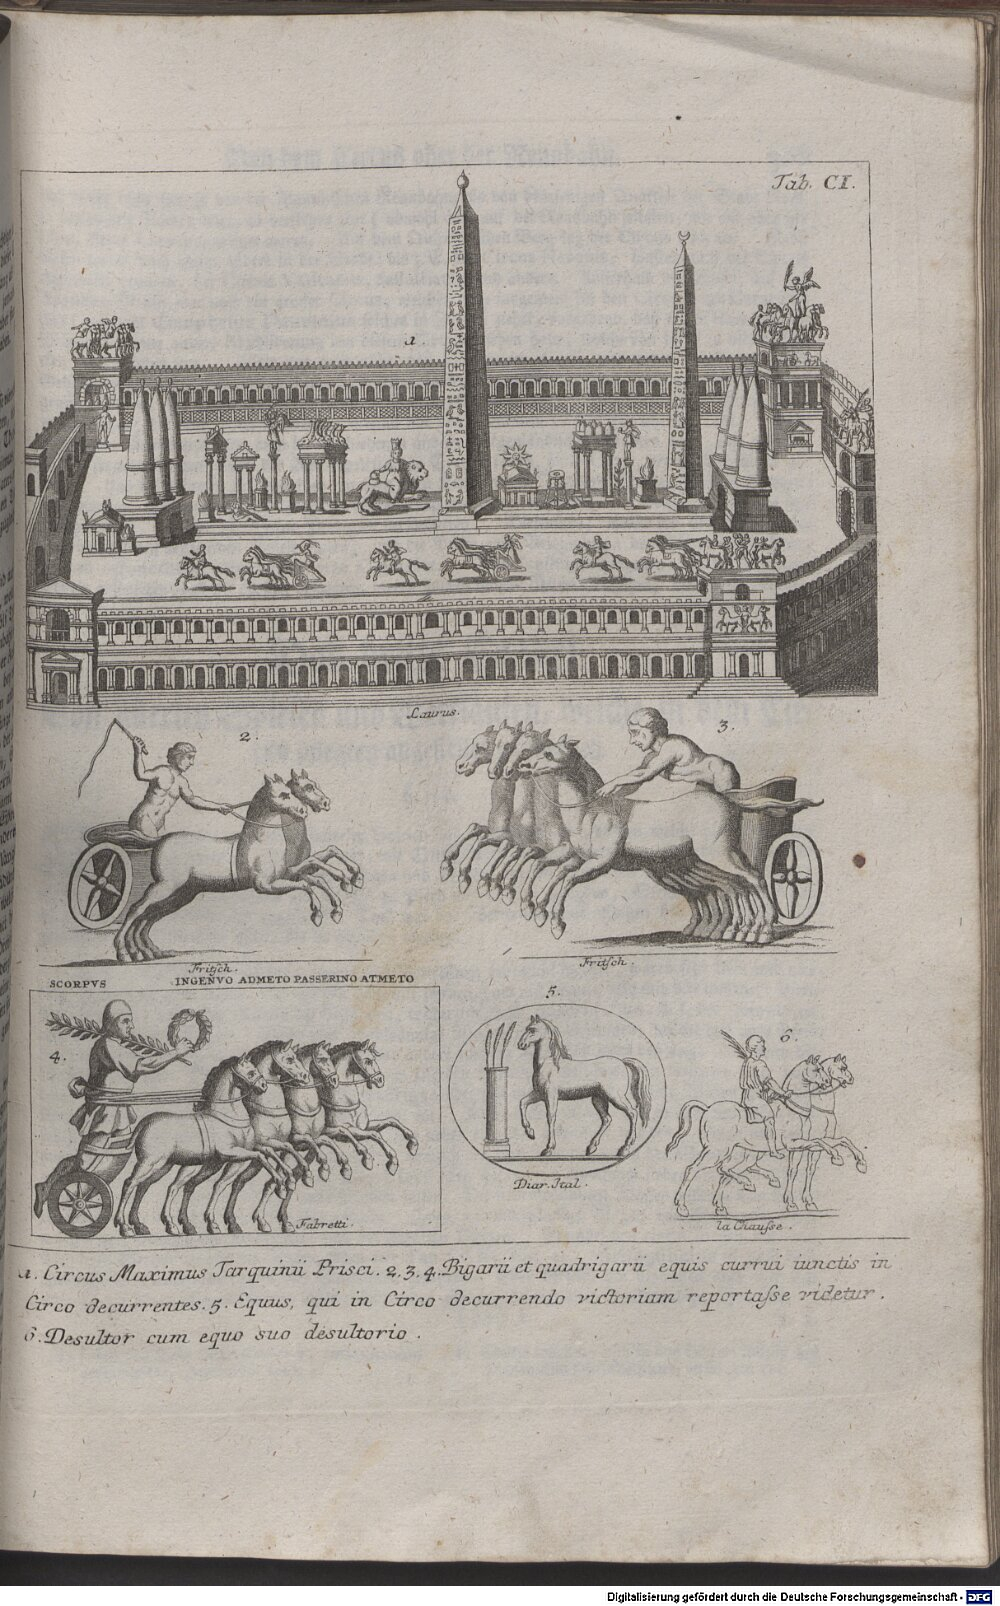 Tab. CI.
1
Laurus.
2.
3.
Fritsch.
Fritsch.
SCORPVS INGENVO ADMETO PASSERINO ATMETO
4.
5.
6.
Fabretti.
Diar. Ital.
la Chausse.
1. Circus Maximus Tarquinii Prisci. 2. 3. 4. Bigarii et quadrigarii equis currui iunctis in
Circo decurrentes. 5. Equus, qui in Circo decurrendo victoriam reportasse videtur.
6. Desultor cum equo suo desultorio.
Digitalisierung gefördert durch die Deutsche Forschungsgemeinschaft - DFG